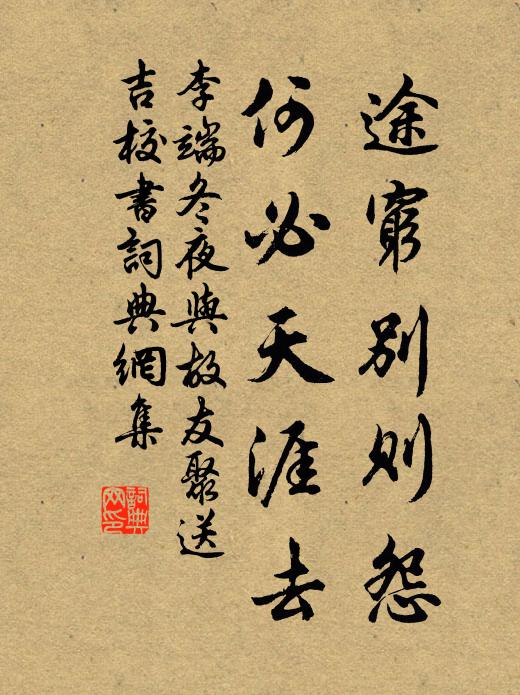 途窮別則怨
何必天涯去
李端冬夜與故友聚送
吉校書詞典網集
詞典
网印